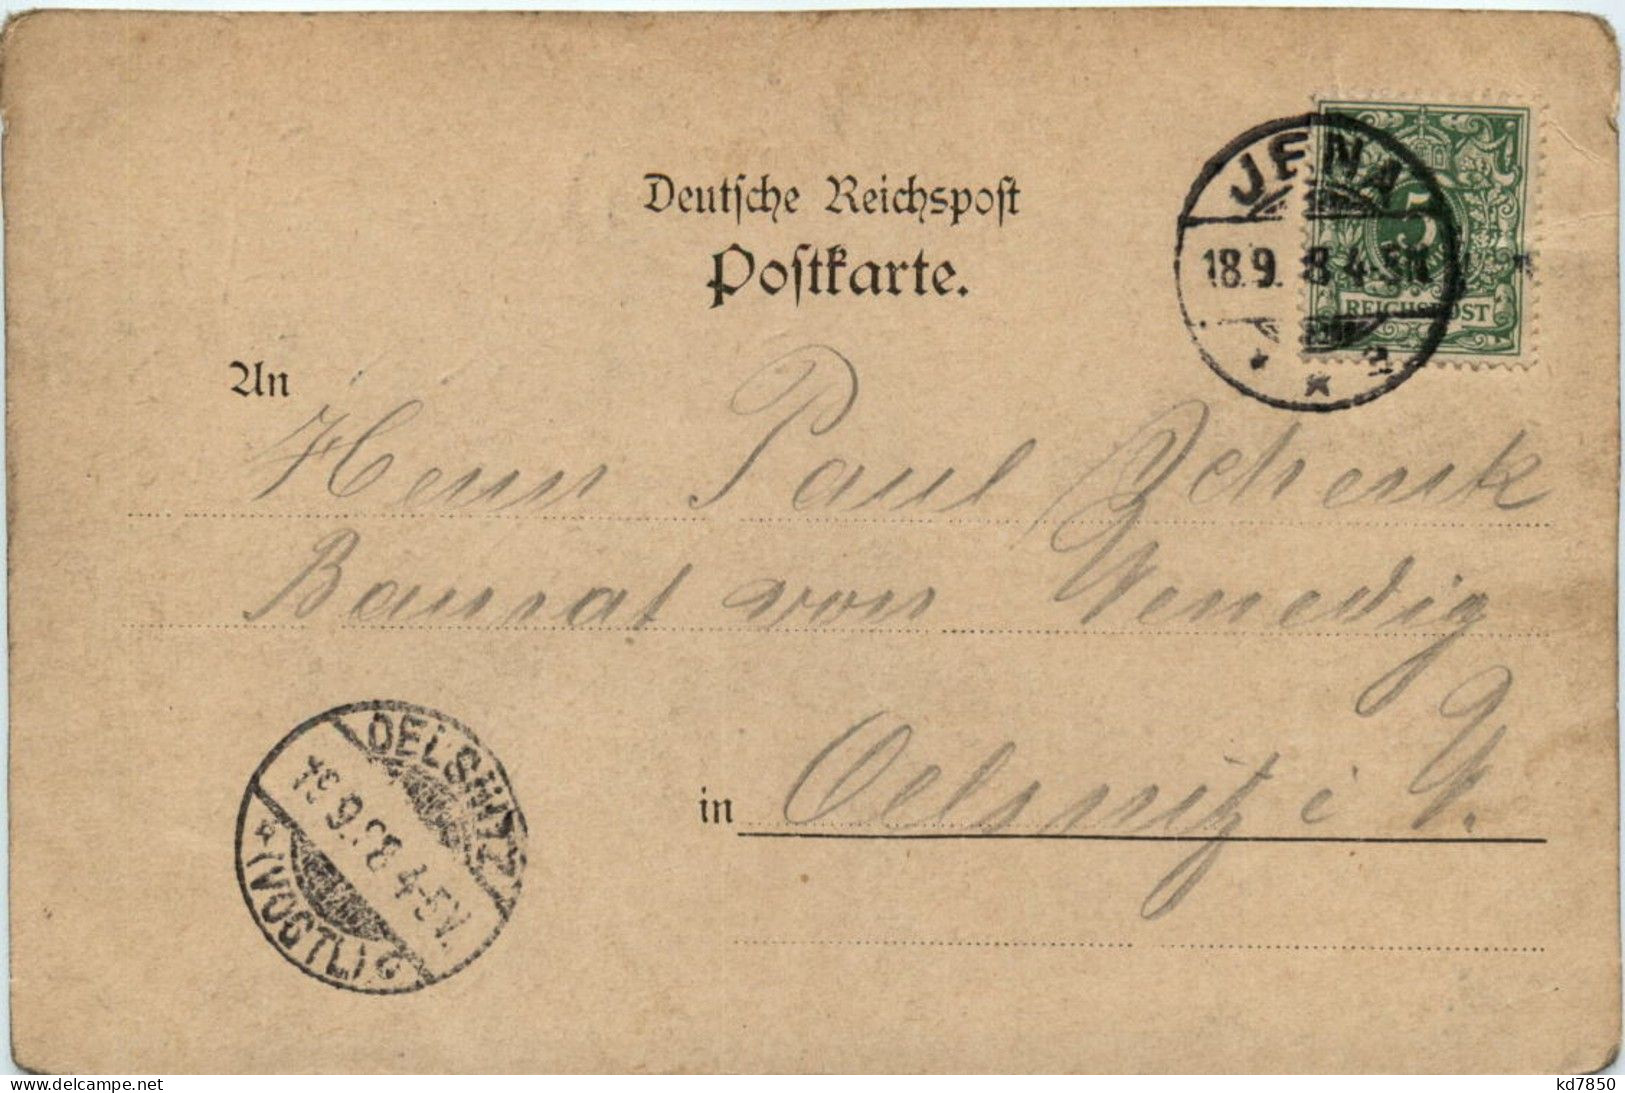 Deutsche Reichspost
Postkarte.
JENA
18.9. 98 4-5N.
5
REICHSPOST
An
Herrn Paul Schenk
Baurat von Venedig
in Oelsnitz i. V.
OELSNITZ
19 9.98 4-5V.
* (VOGTL.)
www.delcampe.net
kd7850